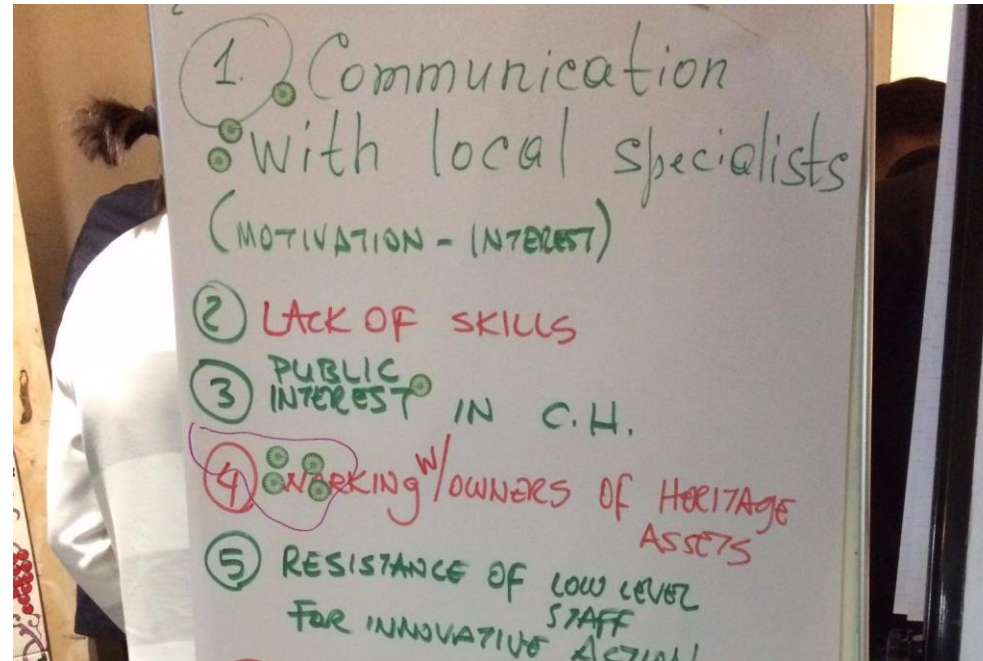 1. Communication
With local specialists
(MOTIVATION - INTEREST)
2 LACK OF SKILLS
3 PUBLIC
INTEREST IN C.H.
4 WORKING W/OWNERS OF HERITAGE
ASSETS
5 RESISTANCE OF LOW LEVEL
STAFF
FOR INNOVATIVE ACTION